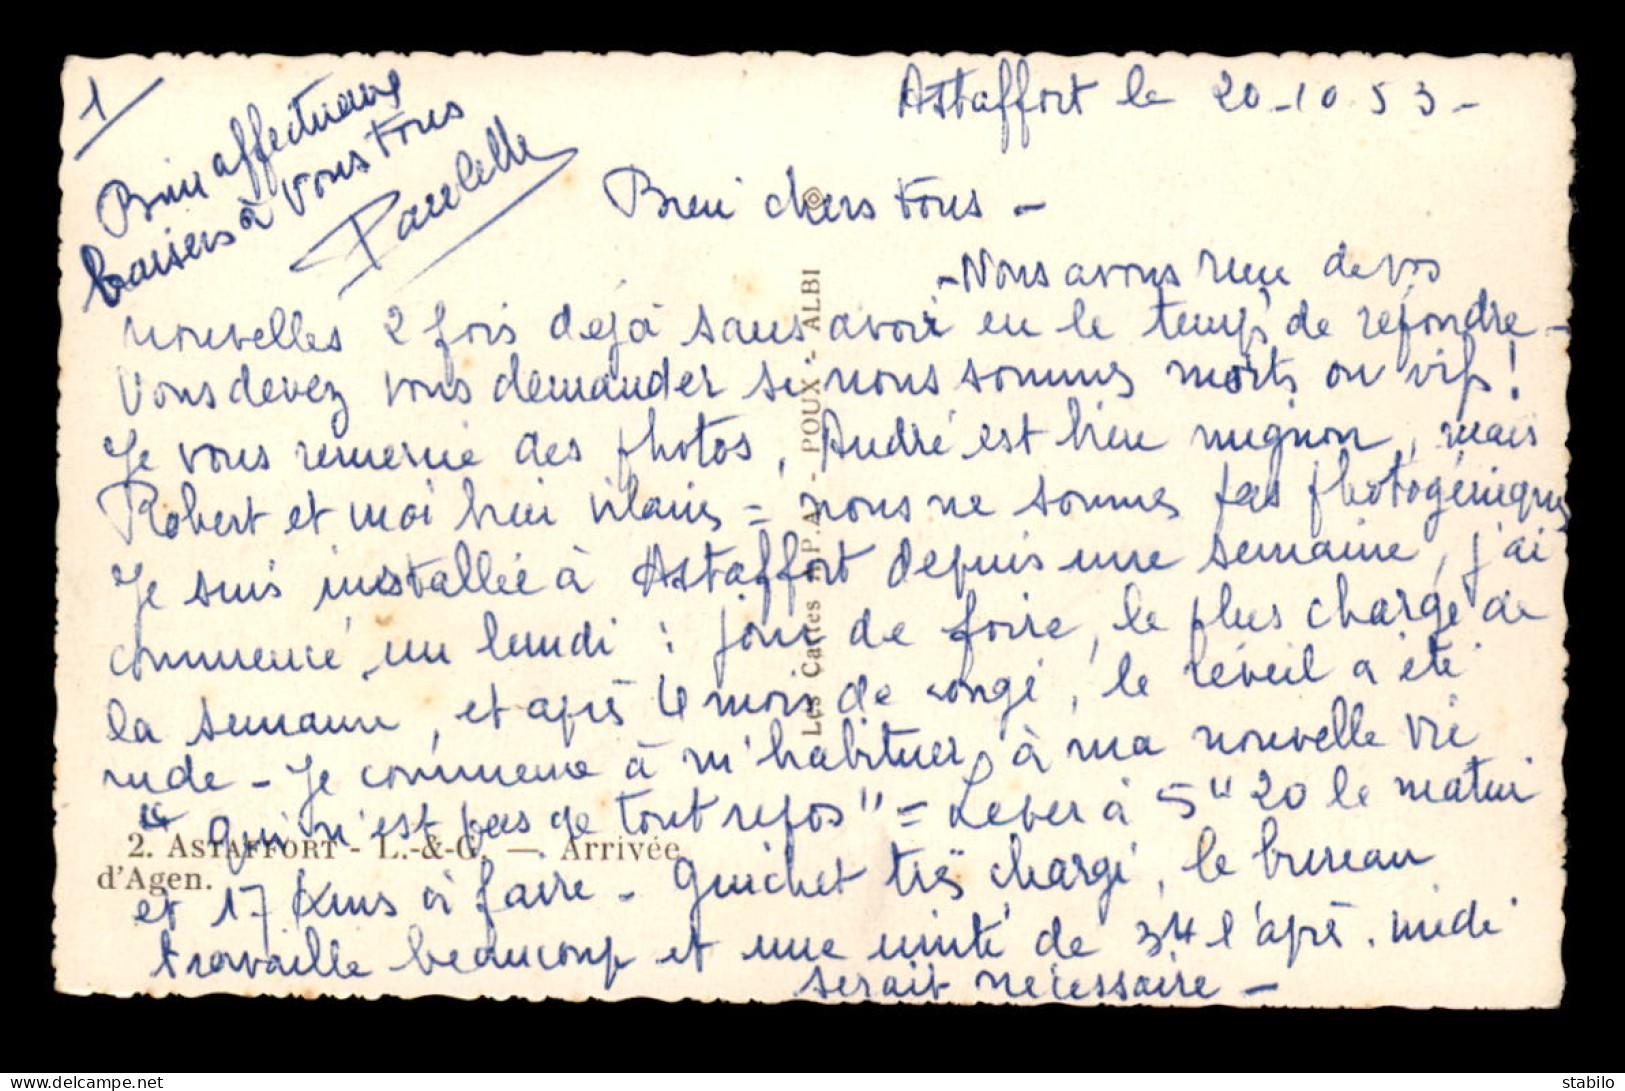 1
Bien affectueux
baisers à vous tous
Paulette
Astaffort le 20-10.53-
Bien chers tous -
- Nous avons reçu de vos
nouvelles 2 fois déjà sans avoir eu le temps de répondre -
Vous devez vous demander si nous sommes morts ou vifs!
Je vous remercie des photos, André est bien mignon, mais
Robert et moi bien vilains = nous ne sommes pas photogéniques
Je suis installée à Astaffort depuis une semaine, j'ai
commencé un lundi : jour de foire, le plus chargé de
la semaine, et après 4 mois de congé, le réveil a été
rude - Je commence à m'habituer à ma nouvelle vie
"qui n'est pas de tout repos" = Lever à 5H20 le matin
et 17 Kms à faire - Guichet très chargé, le bureau
travaille beaucoup et une unité de 3H l'après.midi
serait nécessaire -
2. ASTAFFORT - L.-&-G. — Arrivée
d'Agen.
Les Cartes A.P.A. - POUX - ALBI
www.delcampe.net
stabilo